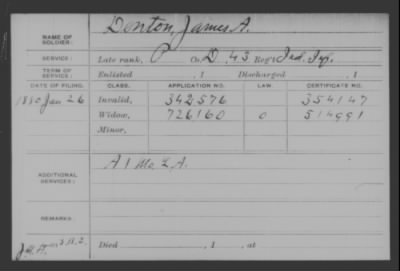 NAME OF SOLDIER: Denton, James A.
SERVICE: Late rank, P Co. D, 43 Reg't Ind. Inf.
TERM OF SERVICE: Enlisted , 1 Discharged , 1
DATE OF FILING. CLASS. APPLICATION NO. LAW. CERTIFICATE NO.
1880 Jan 26 Invalid, 342576 354147
Widow, 726160 0 514991
Minor,
ADDITIONAL SERVICES: A 1 Mo. L. A.
REMARKS:
Died , 1 , at